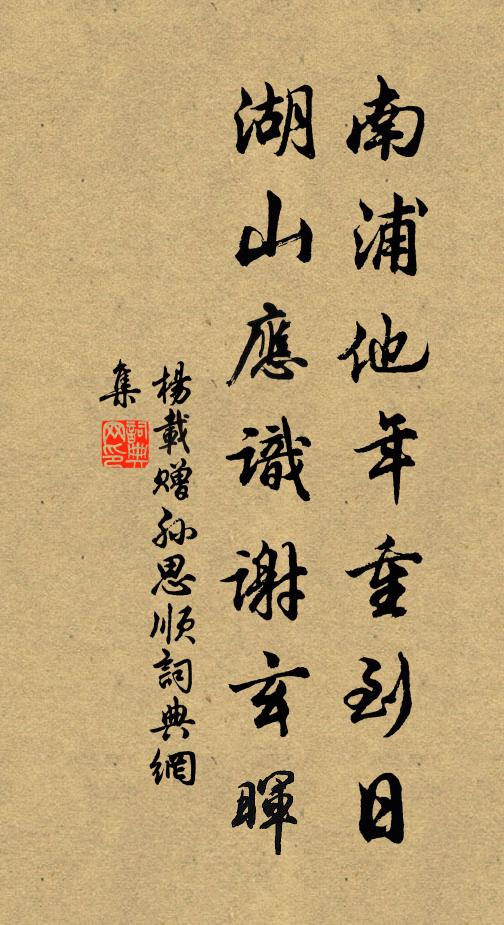 南浦他年重到日
湖山應識謝玄暉
楊載贈孙思順詞典網
集
詞典網印